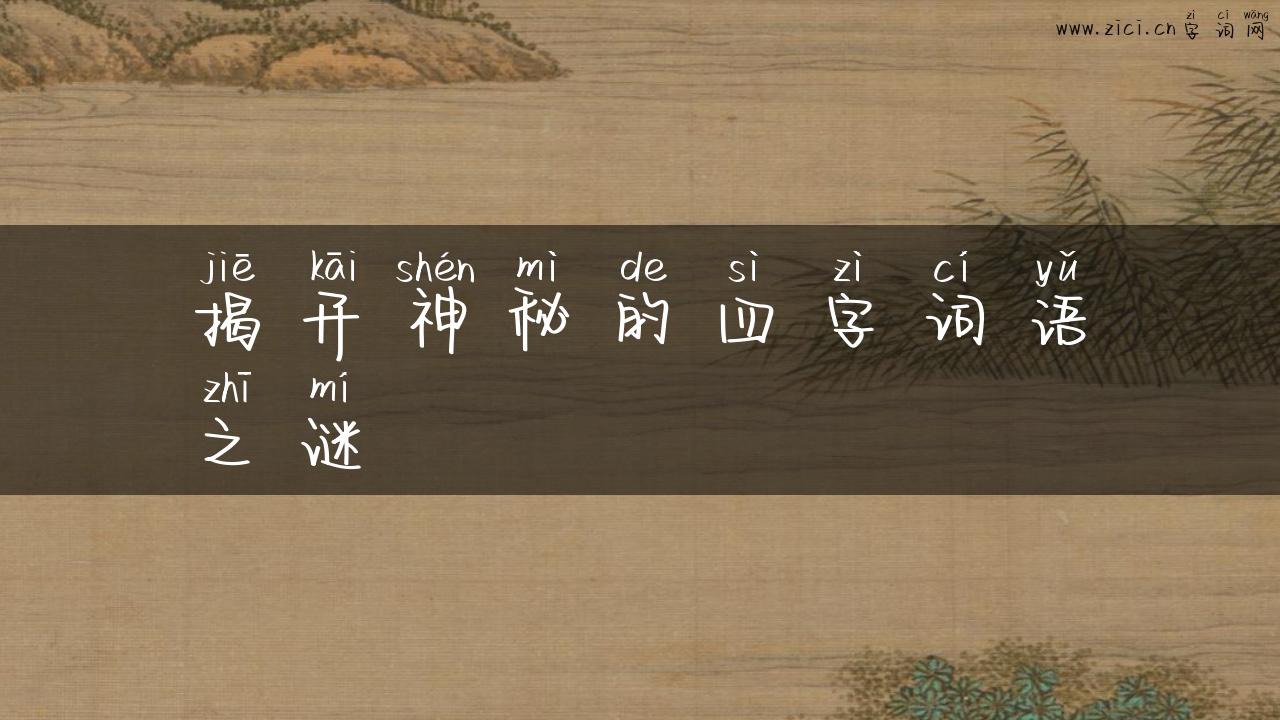 zì cí wǎng
www.zici.cn 字词网
jiē kāi shén mì de sì zì cí yǔ
揭开神秘的四字词语
zhī mí
之谜